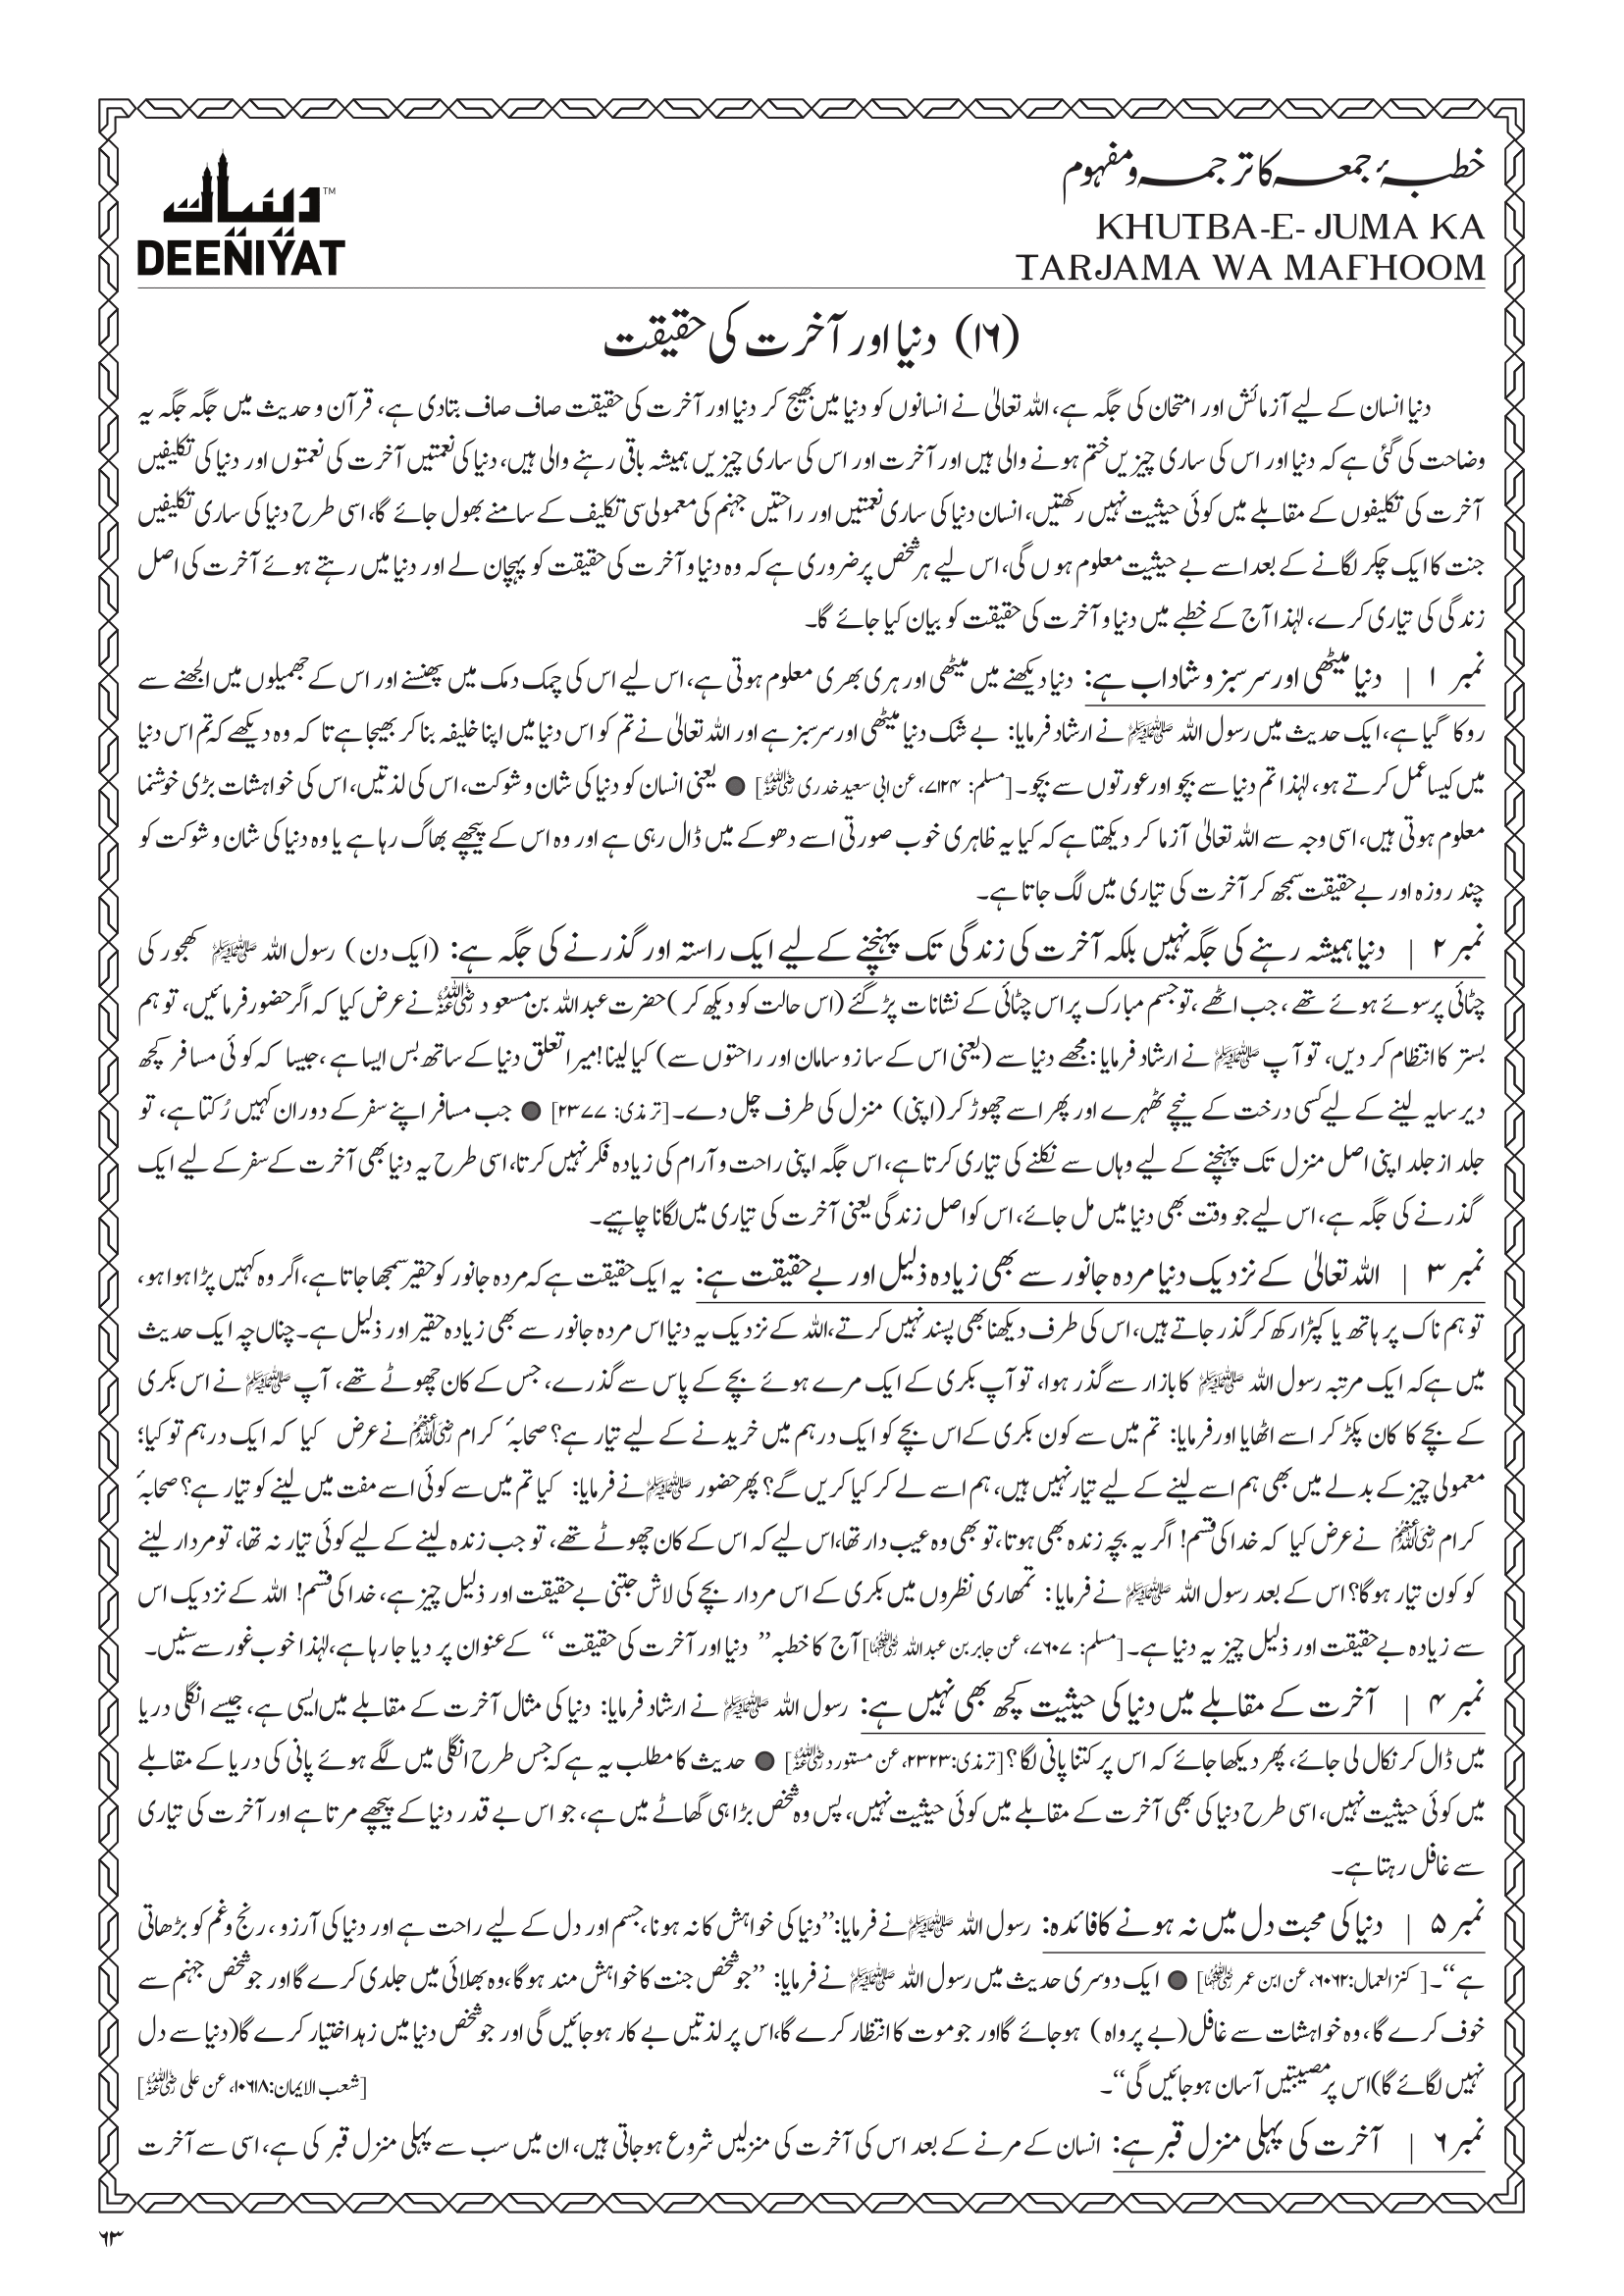 خطبۂ جمعہ کا ترجمہ و مفہوم
KHUTBA-E- JUMA KA
TARJAMA WA MAFHOOM
دینیات™
DEENIYAT
(۱۶) دنیا اور آخرت کی حقیقت
دنیا انسان کے لیے آزمائش اور امتحان کی جگہ ہے، اللہ تعالیٰ نے انسانوں کو دنیا میں بھیج کر دنیا اور آخرت کی حقیقت صاف صاف بتادی ہے، قرآن و حدیث میں جگہ جگہ یہ
وضاحت کی گئی ہے کہ دنیا اور اس کی ساری چیزیں ختم ہونے والی ہیں اور آخرت اور اس کی ساری چیزیں ہمیشہ باقی رہنے والی ہیں، دنیا کی نعمتیں آخرت کی نعمتوں اور دنیا کی تکلیفیں
آخرت کی تکلیفوں کے مقابلے میں کوئی حیثیت نہیں رکھتیں، انسان دنیا کی ساری نعمتیں اور راحتیں جہنم کی معمولی سی تکلیف کے سامنے بھول جائے گا، اسی طرح دنیا کی ساری تکلیفیں
جنت کا ایک چکر لگانے کے بعد اسے بے حیثیت معلوم ہوں گی، اس لیے ہر شخص پر ضروری ہے کہ وہ دنیا و آخرت کی حقیقت کو پہچان لے اور دنیا میں رہتے ہوئے آخرت کی اصل
زندگی کی تیاری کرے، لہٰذا آج کے خطبے میں دنیا و آخرت کی حقیقت کو بیان کیا جائے گا۔
نمبر ۱ | دنیا میٹھی اور سرسبز و شاداب ہے: دنیا دیکھنے میں میٹھی اور ہری بھری معلوم ہوتی ہے، اس لیے اس کی چمک دمک میں پھنسنے اور اس کے جھمیلوں میں الجھنے سے
روکا گیا ہے، ایک حدیث میں رسول اللہ ﷺ نے ارشاد فرمایا: بے شک دنیا میٹھی اور سرسبز ہے اور اللہ تعالیٰ نے تم کو اس دنیا میں اپنا خلیفہ بنا کر بھیجا ہے تا کہ وہ دیکھے کہ تم اس دنیا
میں کیسا عمل کرتے ہو، لہٰذا تم دنیا سے بچو اور عورتوں سے بچو۔ [مسلم: ۷۱۲۴، عن ابی سعید خدری رضی اللہ عنہ] ● یعنی انسان کو دنیا کی شان و شوکت، اس کی لذتیں، اس کی خواہشات بڑی خوشنما
معلوم ہوتی ہیں، اسی وجہ سے اللہ تعالیٰ آزما کر دیکھتا ہے کہ کیا یہ ظاہری خوب صورتی اسے دھوکے میں ڈال رہی ہے اور وہ اس کے پیچھے بھاگ رہا ہے یا وہ دنیا کی شان و شوکت کو
چند روزہ اور بے حقیقت سمجھ کر آخرت کی تیاری میں لگ جاتا ہے۔
نمبر ۲ | دنیا ہمیشہ رہنے کی جگہ نہیں بلکہ آخرت کی زندگی تک پہنچنے کے لیے ایک راستہ اور گذرنے کی جگہ ہے: (ایک دن) رسول اللہ ﷺ کھجور کی
چٹائی پر سوئے ہوئے تھے، جب اٹھے، تو جسم مبارک پر اس چٹائی کے نشانات پڑ گئے (اس حالت کو دیکھ کر) حضرت عبداللہ بن مسعود رضی اللہ عنہ نے عرض کیا کہ اگر حضور فرمائیں، تو ہم
بستر کا انتظام کر دیں، تو آپ ﷺ نے ارشاد فرمایا: مجھے دنیا سے (یعنی اس کے ساز و سامان اور راحتوں سے) کیا لینا! میرا تعلق دنیا کے ساتھ بس ایسا ہے، جیسا کہ کوئی مسافر کچھ
دیر سایہ لینے کے لیے کسی درخت کے نیچے ٹھہرے اور پھر اسے چھوڑ کر (اپنی) منزل کی طرف چل دے۔ [ترمذی: ۲۳۷۷] ● جب مسافر اپنے سفر کے دوران کہیں رُکتا ہے، تو
جلد از جلد اپنی اصل منزل تک پہنچنے کے لیے وہاں سے نکلنے کی تیاری کرتا ہے، اس جگہ اپنی راحت و آرام کی زیادہ فکر نہیں کرتا، اسی طرح یہ دنیا بھی آخرت کے سفر کے لیے ایک
گذرنے کی جگہ ہے، اس لیے جو وقت بھی دنیا میں مل جائے، اس کو اصل زندگی یعنی آخرت کی تیاری میں لگانا چاہیے۔
نمبر ۳ | اللہ تعالیٰ کے نزدیک دنیا مردہ جانور سے بھی زیادہ ذلیل اور بے حقیقت ہے: یہ ایک حقیقت ہے کہ مردہ جانور کو حقیر سمجھا جاتا ہے، اگر وہ کہیں پڑا ہوا ہو،
تو ہم ناک پر ہاتھ یا کپڑا رکھ کر گذر جاتے ہیں، اس کی طرف دیکھنا بھی پسند نہیں کرتے، اللہ کے نزدیک یہ دنیا اس مردہ جانور سے بھی زیادہ حقیر اور ذلیل ہے۔ چناں چہ ایک حدیث
میں ہے کہ ایک مرتبہ رسول اللہ ﷺ کا بازار سے گذر ہوا، تو آپ بکری کے ایک مرے ہوئے بچے کے پاس سے گذرے، جس کے کان چھوٹے تھے، آپ ﷺ نے اس بکری
کے بچے کا کان پکڑ کر اسے اٹھایا اور فرمایا: تم میں سے کون بکری کے اس بچے کو ایک درہم میں خریدنے کے لیے تیار ہے؟ صحابۂ کرام رضی اللہ عنہم نے عرض کیا کہ ایک درہم تو کیا؛
معمولی چیز کے بدلے میں بھی ہم اسے لینے کے لیے تیار نہیں ہیں، ہم اسے لے کر کیا کریں گے؟ پھر حضور ﷺ نے فرمایا: کیا تم میں سے کوئی اسے مفت میں لینے کو تیار ہے؟ صحابۂ
کرام رضی اللہ عنہم نے عرض کیا کہ خدا کی قسم! اگر یہ بچہ زندہ بھی ہوتا، تو بھی وہ عیب دار تھا، اس لیے کہ اس کے کان چھوٹے تھے، تو جب زندہ لینے کے لیے کوئی تیار نہ تھا، تو مردار لینے
کو کون تیار ہوگا؟ اس کے بعد رسول اللہ ﷺ نے فرمایا: تمھاری نظروں میں بکری کے اس مردار بچے کی لاش جتنی بے حقیقت اور ذلیل چیز ہے، خدا کی قسم! اللہ کے نزدیک اس
سے زیادہ بے حقیقت اور ذلیل چیز یہ دنیا ہے۔ [مسلم: ۷۶۰۷، عن جابر بن عبداللہ رضی اللہ عنہما] آج کا خطبہ ”دنیا اور آخرت کی حقیقت“ کے عنوان پر دیا جا رہا ہے، لہٰذا خوب غور سے سنیں۔
نمبر ۴ | آخرت کے مقابلے میں دنیا کی حیثیت کچھ بھی نہیں ہے: رسول اللہ ﷺ نے ارشاد فرمایا: دنیا کی مثال آخرت کے مقابلے میں ایسی ہے، جیسے انگلی دریا
میں ڈال کر نکال لی جائے، پھر دیکھا جائے کہ اس پر کتنا پانی لگا؟ [ترمذی: ۲۳۲۳، عن مستورد رضی اللہ عنہ] ● حدیث کا مطلب یہ ہے کہ جس طرح انگلی میں لگے ہوئے پانی کی دریا کے مقابلے
میں کوئی حیثیت نہیں، اسی طرح دنیا کی بھی آخرت کے مقابلے میں کوئی حیثیت نہیں، پس وہ شخص بڑا ہی گھاٹے میں ہے، جو اس بے قدر دنیا کے پیچھے مرتا ہے اور آخرت کی تیاری
سے غافل رہتا ہے۔
نمبر ۵ | دنیا کی محبت دل میں نہ ہونے کا فائدہ: رسول اللہ ﷺ نے فرمایا: ”دنیا کی خواہش کا نہ ہونا، جسم اور دل کے لیے راحت ہے اور دنیا کی آرزو، رنج و غم کو بڑھاتی
ہے“۔ [کنز العمال: ۶۰۶۲، عن ابن عمر رضی اللہ عنہما] ● ایک دوسری حدیث میں رسول اللہ ﷺ نے فرمایا: ”جو شخص جنت کا خواہش مند ہوگا، وہ بھلائی میں جلدی کرے گا اور جو شخص جہنم سے
خوف کرے گا، وہ خواہشات سے غافل (بے پرواہ) ہو جائے گا اور جو موت کا انتظار کرے گا، اس پر لذتیں بے کار ہو جائیں گی اور جو شخص دنیا میں زہد اختیار کرے گا (دنیا سے دل
نہیں لگائے گا) اس پر مصیبتیں آسان ہو جائیں گی“۔ [شعب الایمان: ۱۰۶۱۸، عن علی رضی اللہ عنہ]
نمبر ۶ | آخرت کی پہلی منزل قبر ہے: انسان کے مرنے کے بعد اس کی آخرت کی منزلیں شروع ہو جاتی ہیں، ان میں سب سے پہلی منزل قبر کی ہے، اسی سے آخرت
۶۳